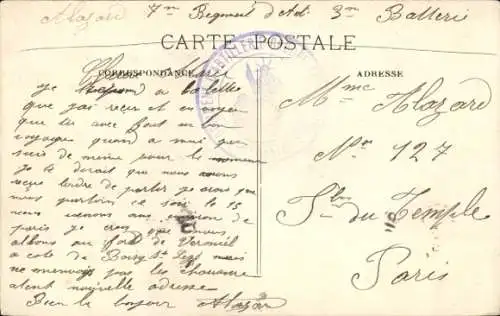 Alazard 7me Regiment d'Art 3me Batterie
CARTE POSTALE
CORRESPONDANCE
ADRESSE
Chère
Je repond a ta lettre
que j'ai reçu et en voyen
que tu avec fait un bon
voyage quand a moi que
suis de meme pour le moment
je te dirait que nous avons
reçue lordre de partir je crois que
nous partiron ce soir le 15
nous venons aux environ de
paris je crois que nous
allons au fort de Verneuil
a cote de Boissy St Leger mais
ne menvoies pas les chaussures
atent nouvelle adresse
Bien le bonjour Alazar
Mme Alazard
No 127
Fbg du Temple
Paris